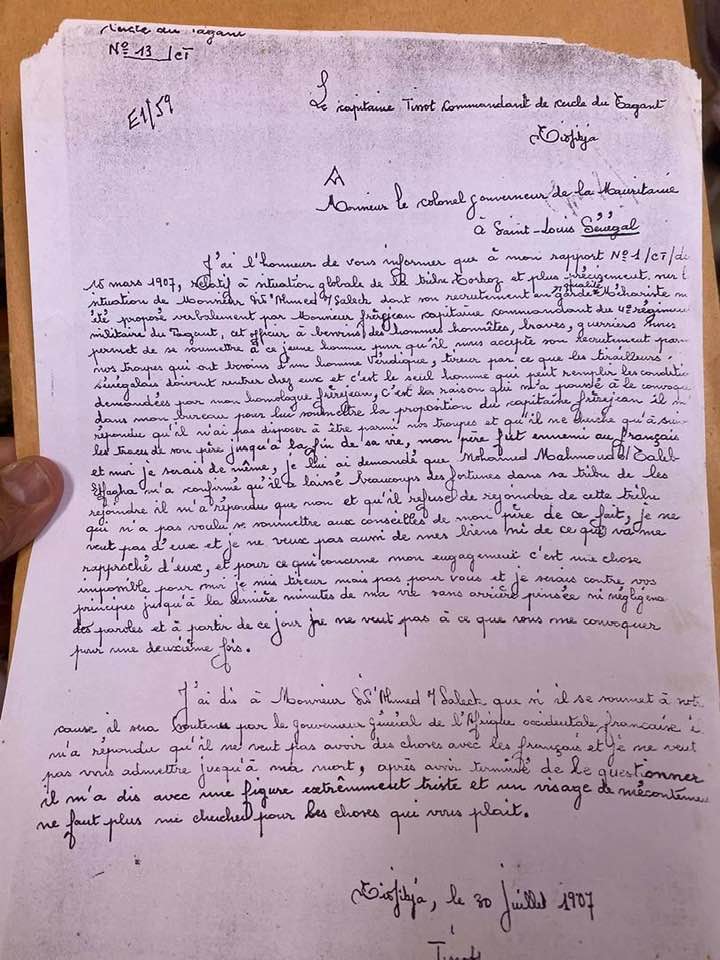 Cercle du Tagant
Nº 13 /CT
E1/59
Le capitaine Tissot Commandant de cercle du Tagant
Tidjikja
A
Monsieur le colonel gouverneur de la Mauritanie
à Saint-Louis Sénégal
J'ai l'honneur de vous informer que à moni rapport Nº 1/CT/du
15 mars 1907, relatif à situation globale de la tribu Torkoz et plus précisement sur l
situation de Monsieur Sid'Ahmed o/ Saleck dont son recrutement en qualité garde Méhariste m
été proposé verbalement par Monsieur frèjean capitaine commandant du 4e régimen
militaire du Tagant, cet officier à besoins des hommes honnêtes, braves, guerriers
permet de se soumettre à ce jeune homme pour qu'il nous accepte son recrutement parm
nos troupes qui ont besoins d'un homme véridique, tireur par ce que les tirailleurs
sénégalais doivent rentrer chez eux et c'est le seul homme qui peut remplir les conditi
demandées par mon homologue frèrejean, C'est la raison qui m'a poussé à le convoqu
dans mon bureau pour lui soumettre la proposition du capitaine frèrejean il m'
répondu qu'il n'ai pas disposer à être parmi nos troupes et qu'il ne cherche qu'à suiv
les traces de son père jusqu'à la fin de sa vie, mon père fut ennemi au français
et moi je serais de même, je lui ai demandé que Mohamed Mahmoud o/ Taleb
Hagha m'a confirmé qu'il a laissé beaucoups des fortunes dans sa tribu de les
rejoindre il m'a répondu que non et qu'il refuse de rejoindre de cette tribu
qui n'a pas voulu se soumettre aux conseilles de mon père de ce fait, je ne
veut pas d'eux et je ne veux pas aussi de mes biens ni de ce qui va me
rapproché d'eux, et pour ce qui concerne mon engagement c'est une chose
impossible pour moi je suis tireur mais pas pour vous et je serais contre vos
principes jusqu'à la dernière minutes de ma vie sans arrière pensée ni négligence
des paroles et à partir de ce jour je ne veut pas à ce que vous me convoquer
pour une deuxième fois.
J'ai dis à Monsieur Sid'Ahmed o/ Saleck que si il se soumet à notr
cause il sera soutenu par le gouverneur général de l'Afrique occidentale française i
m'a répondu qu'il ne veut pas avoir des choses avec les français et je ne veut
pas vous admettre jusqu'à ma mort, après avoir terminé de le questionner
il m'a dis avec une figure extrêmment triste et un visage de mécontenteme
ne faut plus me chercher pour les choses qui vous plait.
Tidjikja, le 30 juillet 1907
Tissot